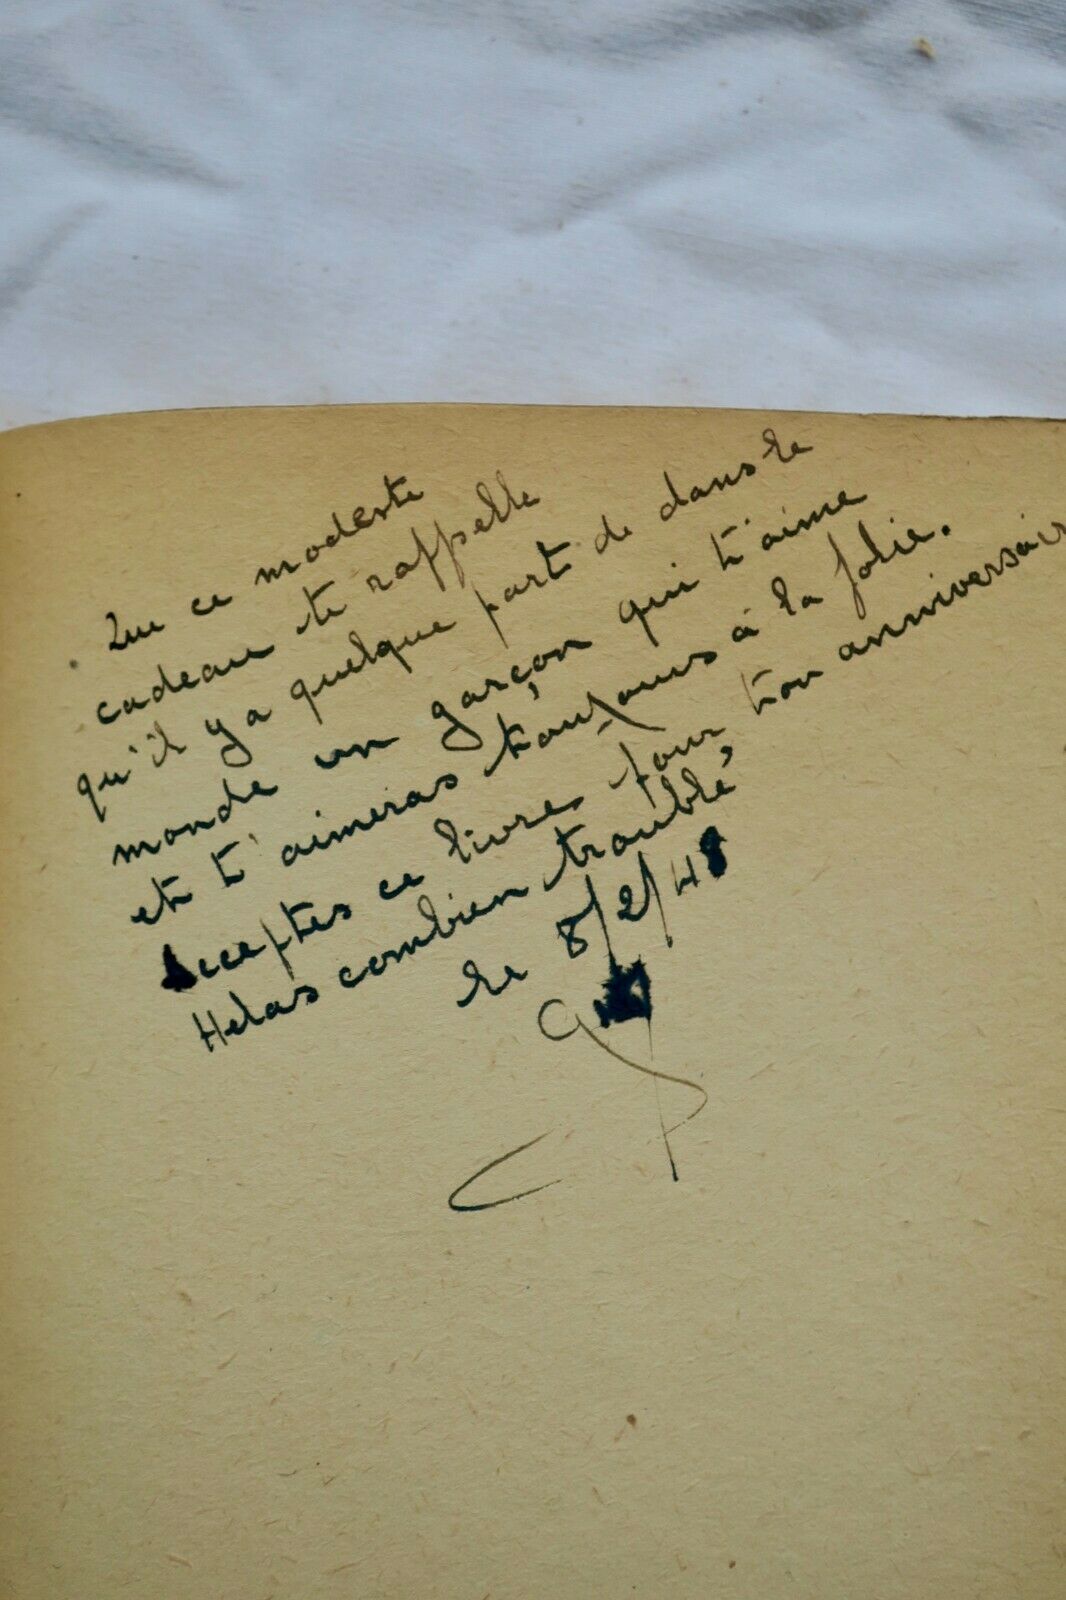 Que ce modeste
cadeau te rappelle
qu'il y a quelque part de dans le
monde un garçon qui t'aime
et t'aimeras toujours à la folie.
Acceptes ce livre pour ton anniversair
Helas combien troublé,
le 8/2/48